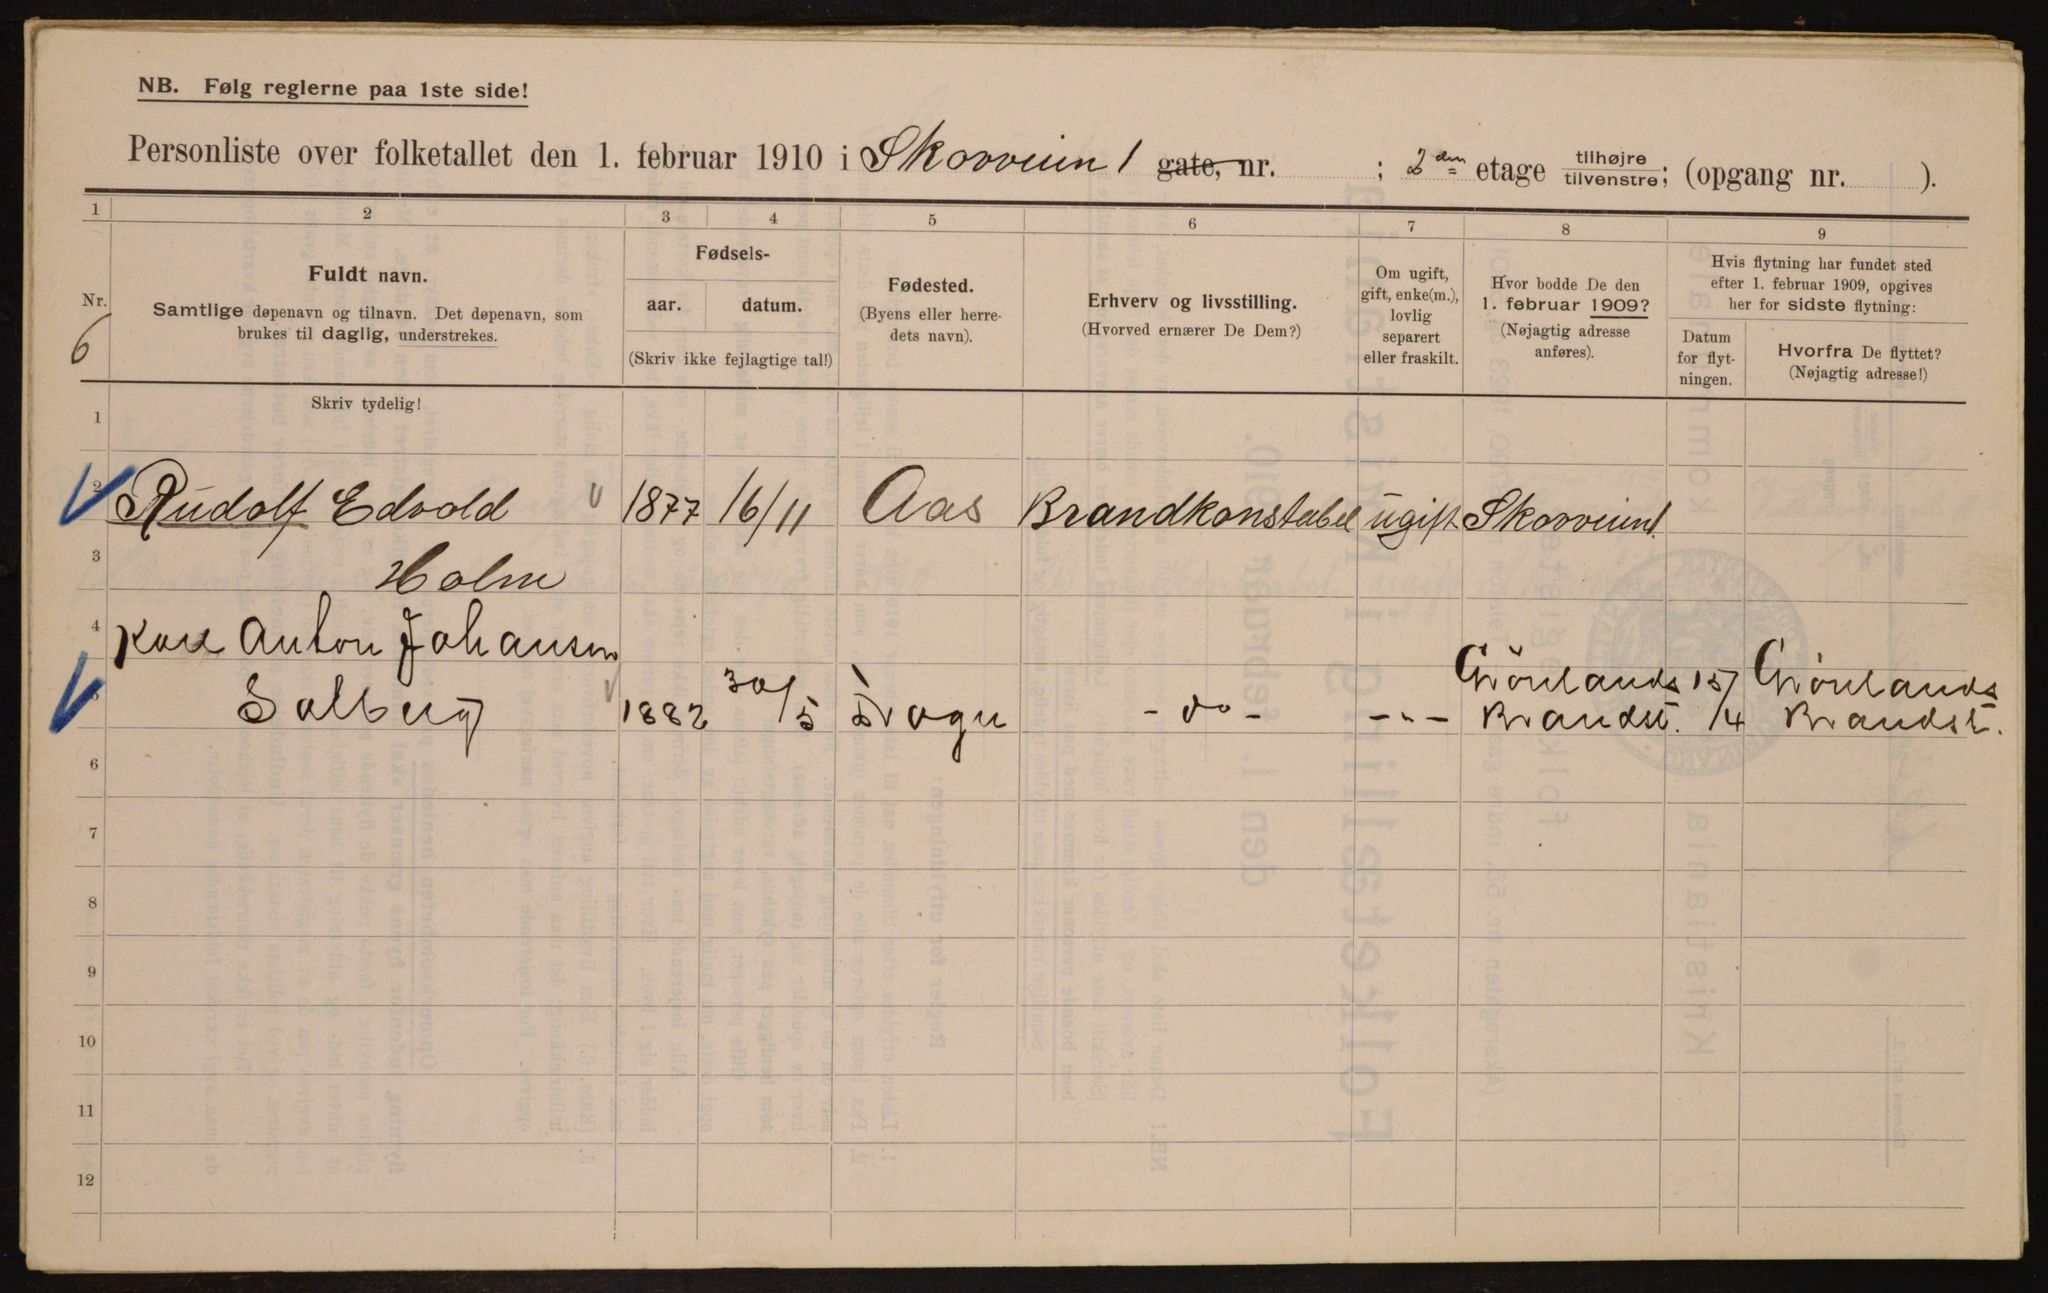 NB. Følg reglerne paa 1ste side!
Personliste over folketallet den 1. februar 1910 i Skovveien 1 gate, nr. ; 2den etage tilhøjre tilvenstre; (opgang nr. ).
1 2 3 4 5 6 7 8 9
Nr.
6
Fuldt navn.
Samtlige døpenavn og tilnavn. Det døpenavn, som
brukes til daglig, understrekes.
Fødsels-
aar. datum.
(Skriv ikke fejlagtige tal!)
Fødested.
(Byens eller herre-
dets navn).
Erhverv og livsstilling.
(Hvorved ernærer De Dem?)
Om ugift,
gift, enke(m.),
lovlig
separert
eller fraskilt.
Hvor bodde De den
1. februar 1909?
(Nøjagtig adresse
anføres).
Hvis flytning har fundet sted
efter 1. februar 1909, opgives
her for sidste flytning:
Datum
for flyt-
ningen.
Hvorfra De flyttet?
(Nøjagtig adresse!)
Skriv tydelig!
1
2 Rudolf Edvold 1877 16/11 Aas Brandkonstabel ugift Skovveien 1.
3 Holm
4 Karl Anton Johansen
5 Solberg 1882 30/5 -do- -"- Grönlands Brandst. 15/4 Grönlands Brandst.
6
7
8
9
10
11
12